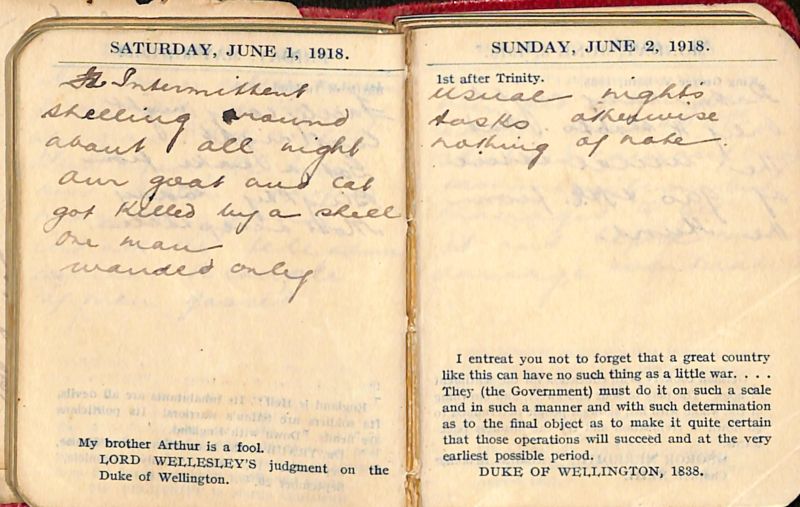 SATURDAY, JUNE 1, 1918.
Intermittent
shelling around
about all night
our goat and cat
got killed by a shell
one man
wounded only
My brother Arthur is a fool.
LORD WELLESLEY'S judgment on the
Duke of Wellington.
SUNDAY, JUNE 2, 1918.
1st after Trinity.
usual night's
tasks otherwise
nothing of note.
I entreat you not to forget that a great country
like this can have no such thing as a little war. . . .
They (the Government) must do it on such a scale
and in such a manner and with such determination
as to the final object as to make it quite certain
that those operations will succeed and at the very
earliest possible period.
DUKE OF WELLINGTON, 1838.